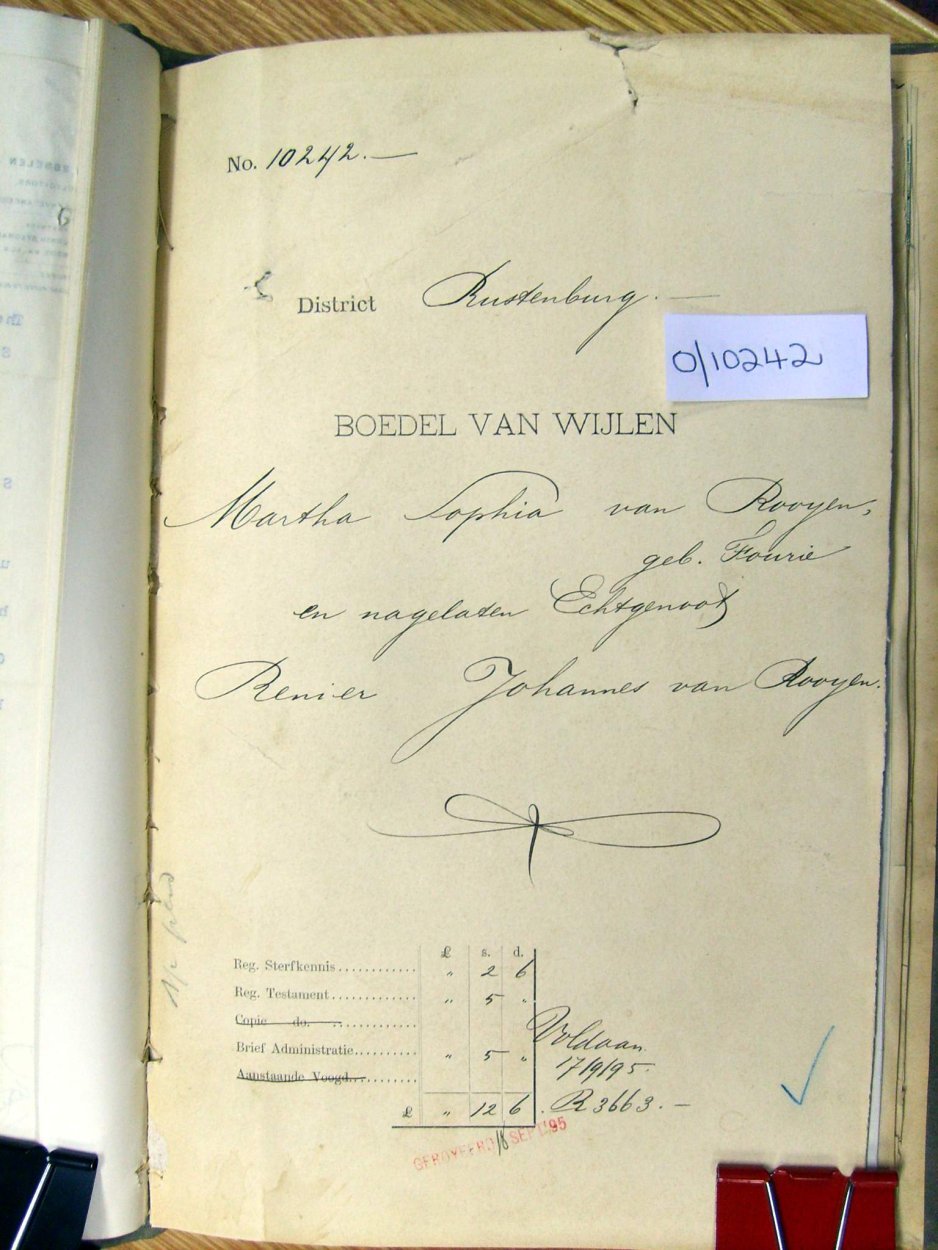 No. 10242.—
District Rustenburg.—
0/10242
BOEDEL VAN WIJLEN
Martha Sophia van Rooyen,
geb. Fourie
en nagelaten Echtgenoot
Renier Johannes van Rooyen.
£ s. d.
Reg. Sterfkennis............ " 2 6
Reg. Testament............ " 5 "
Copie do. ............
Brief Administratie.......... " 5 "
Aanstaande Voogd............
£ " 12 6
Voldaan
17/9/95.
R 3663.—
GEROYEERD 18 SEPT. 95